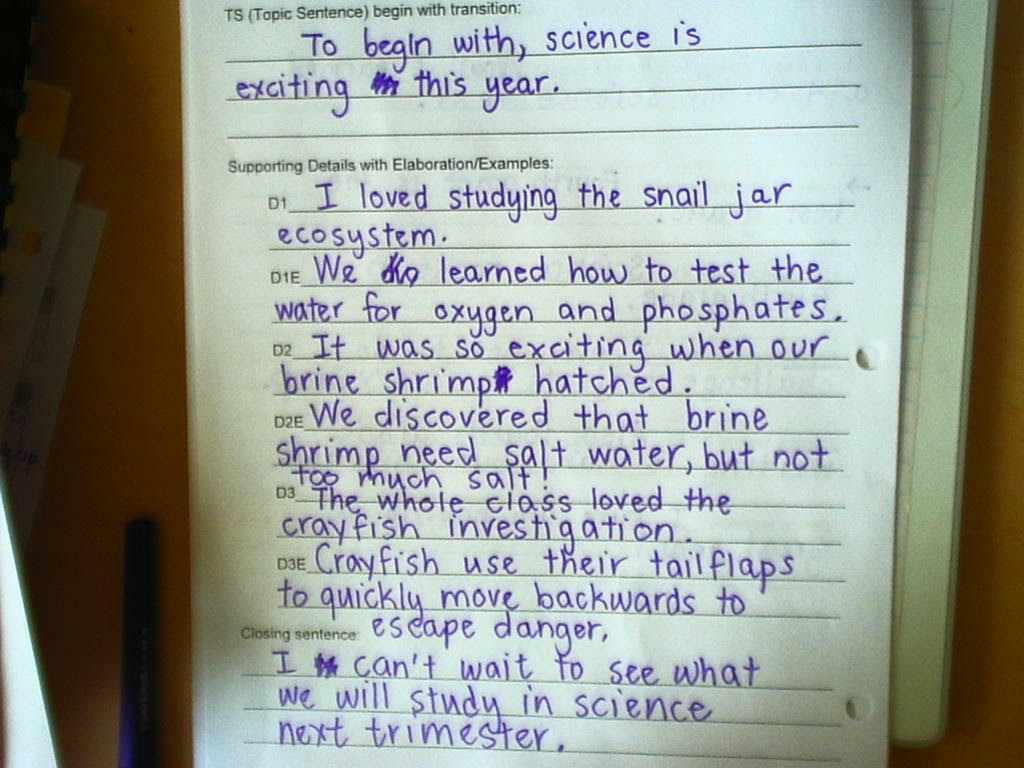 TS (Topic Sentence) begin with transition:
To begin with, science is
exciting this year.
Supporting Details with Elaboration/Examples:
D1 I loved studying the snail jar
ecosystem.
D1E We learned how to test the
water for oxygen and phosphates.
D2 It was so exciting when our
brine shrimp hatched.
D2E We discovered that brine
shrimp need salt water, but not
too much salt!
D3 The whole class loved the
crayfish investigation.
D3E Crayfish use their tailflaps
to quickly move backwards to
escape danger.
Closing sentence:
I can't wait to see what
we will study in science
next trimester.